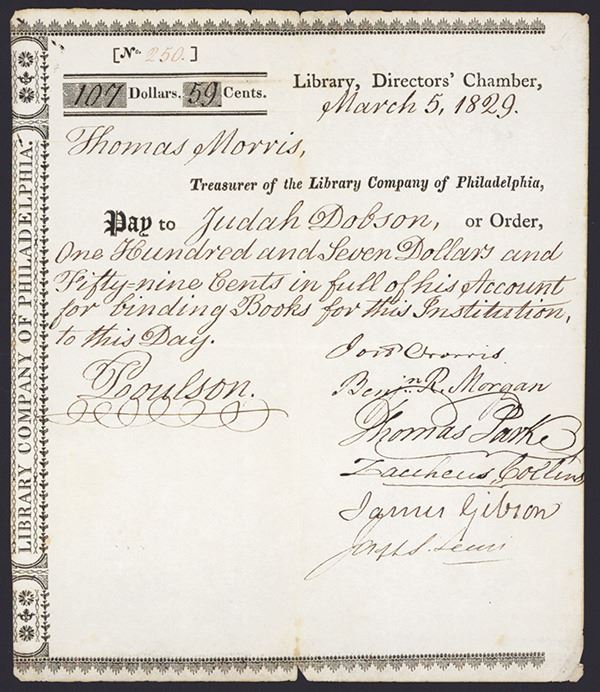 [No. 250.]
107 Dollars. 59 Cents.
Library, Directors' Chamber,
March 5, 1829.
Thomas Morris,
Treasurer of the Library Company of Philadelphia,
Pay to Judah Dobson, or Order,
One Hundred and Seven Dollars and
Fifty-nine Cents in full of his Account
for binding Books for this Institution,
to this Day.
Poulson.
Morris.
Benjn. R. Morgan
Thomas Parke
Zaccheus Collins
James Gibson
S. Lewis
LIBRARY COMPANY OF PHILADELPHIA.